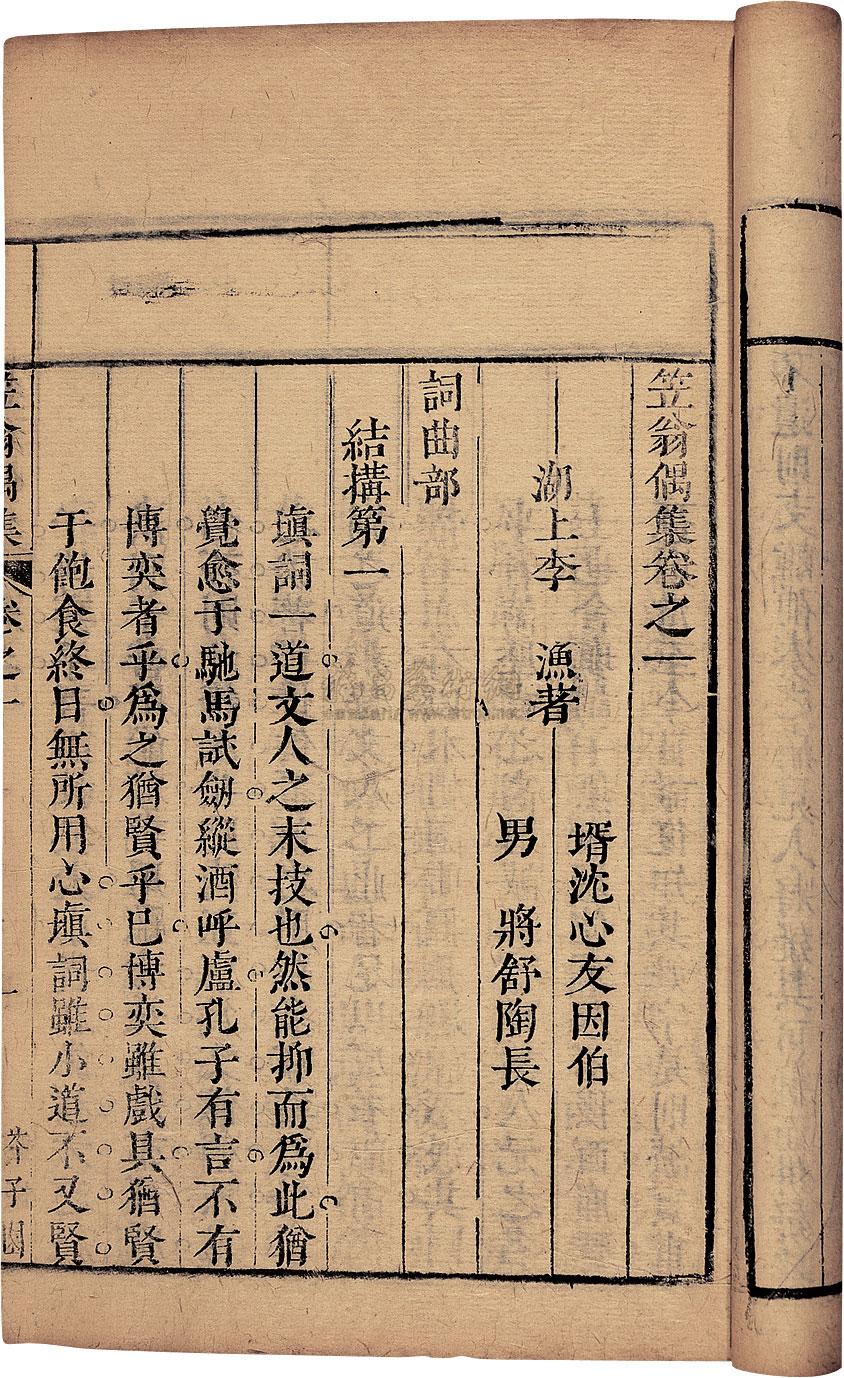 笠翁偶集卷之一
湖上李　漁著
壻沈心友因伯
男　將舒陶長
詞曲部
結構第一
塡詞一道文人之末技也然能抑而爲此猶
覺愈于馳馬試劒縱酒呼盧孔子有言不有
博奕者乎爲之猶賢乎已博奕雖戲具猶賢
于飽食終日無所用心塡詞雖小道不又賢
笠翁偶集
卷之一
一
芥子園